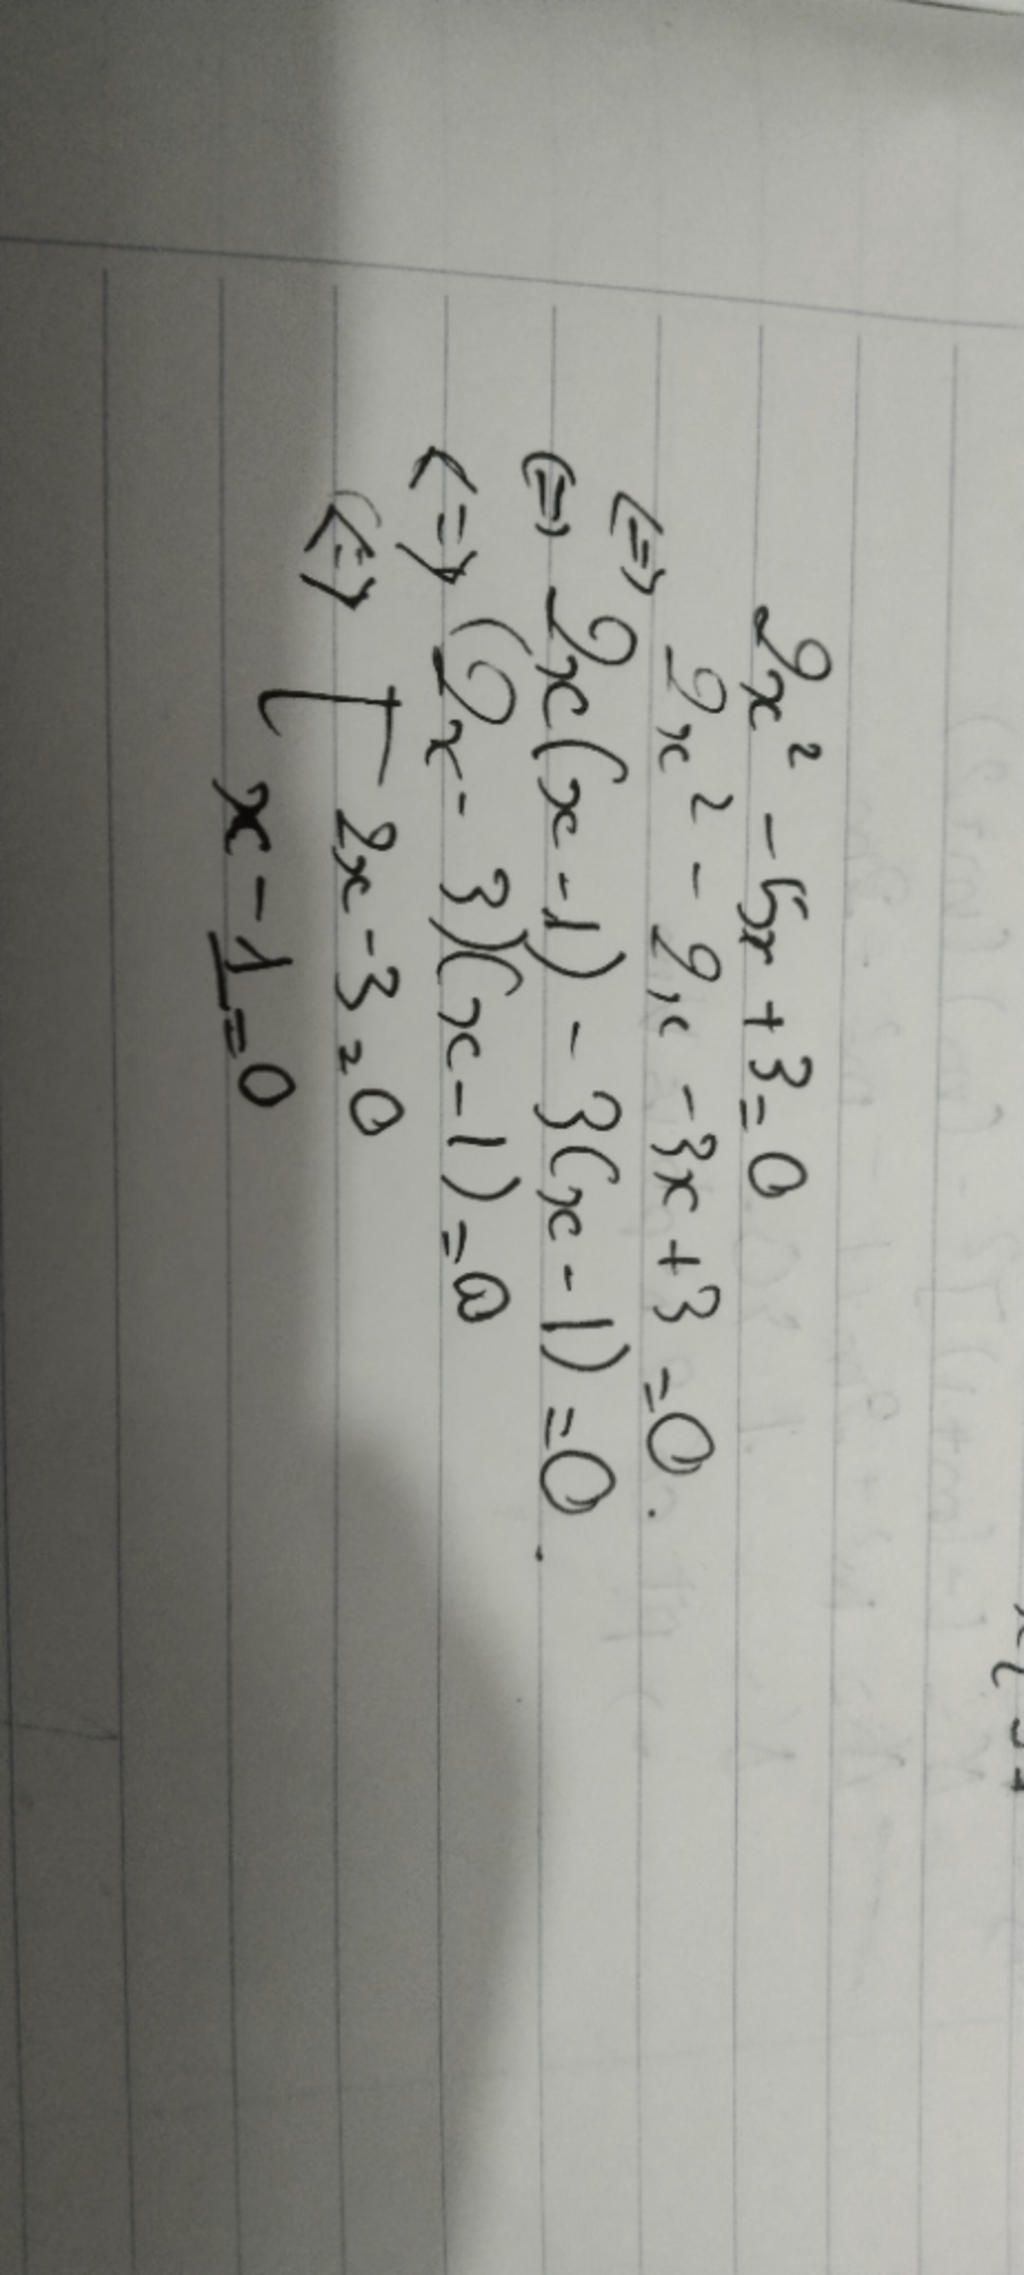 2x² - 5x + 3 = 0
<=> 2x² - 2x - 3x + 3 = 0.
<=> 2x(x - 1) - 3(x - 1) = 0.
<=> (2x - 3)(x - 1) = 0
<=> [ 2x - 3 = 0
x - 1 = 0